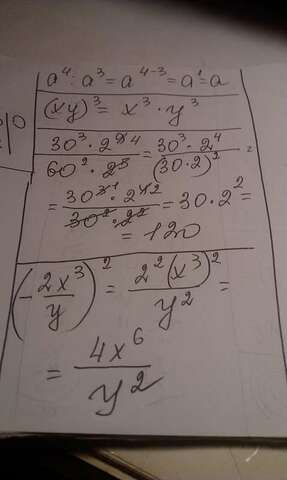 a⁴ : a³ = a⁴⁻³ = a¹ = a
(xy)³ = x³ · y³
30³ · 2⁹ ⁴ / 60² · 2⁵ = 30³ · 2⁴ / (30 · 2)² =
= 30³ ¹ · 2⁴ ² / 30² · 2² = 30 · 2² =
= 120
(- 2x³ / y)² = 2² (x³)² / y² =
= 4x⁶ / y²